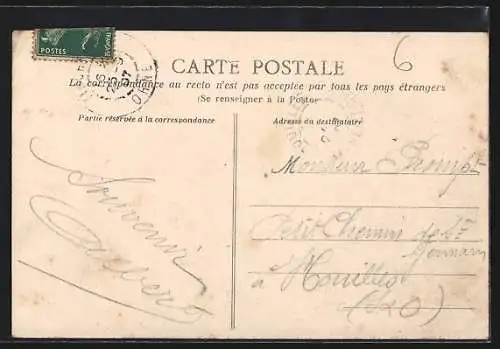 POSTES
25-5
07
ORNE
6
CARTE POSTALE
La correspondance au recto n'est pas acceptée par tous les pays étrangers
(Se renseigner à la Poste)
Partie réservée à la correspondance
Adresse du destinataire
Souvenir
Albert
Monsieur
Petit Chemin de St
Germain
à Houilles
(S&O)